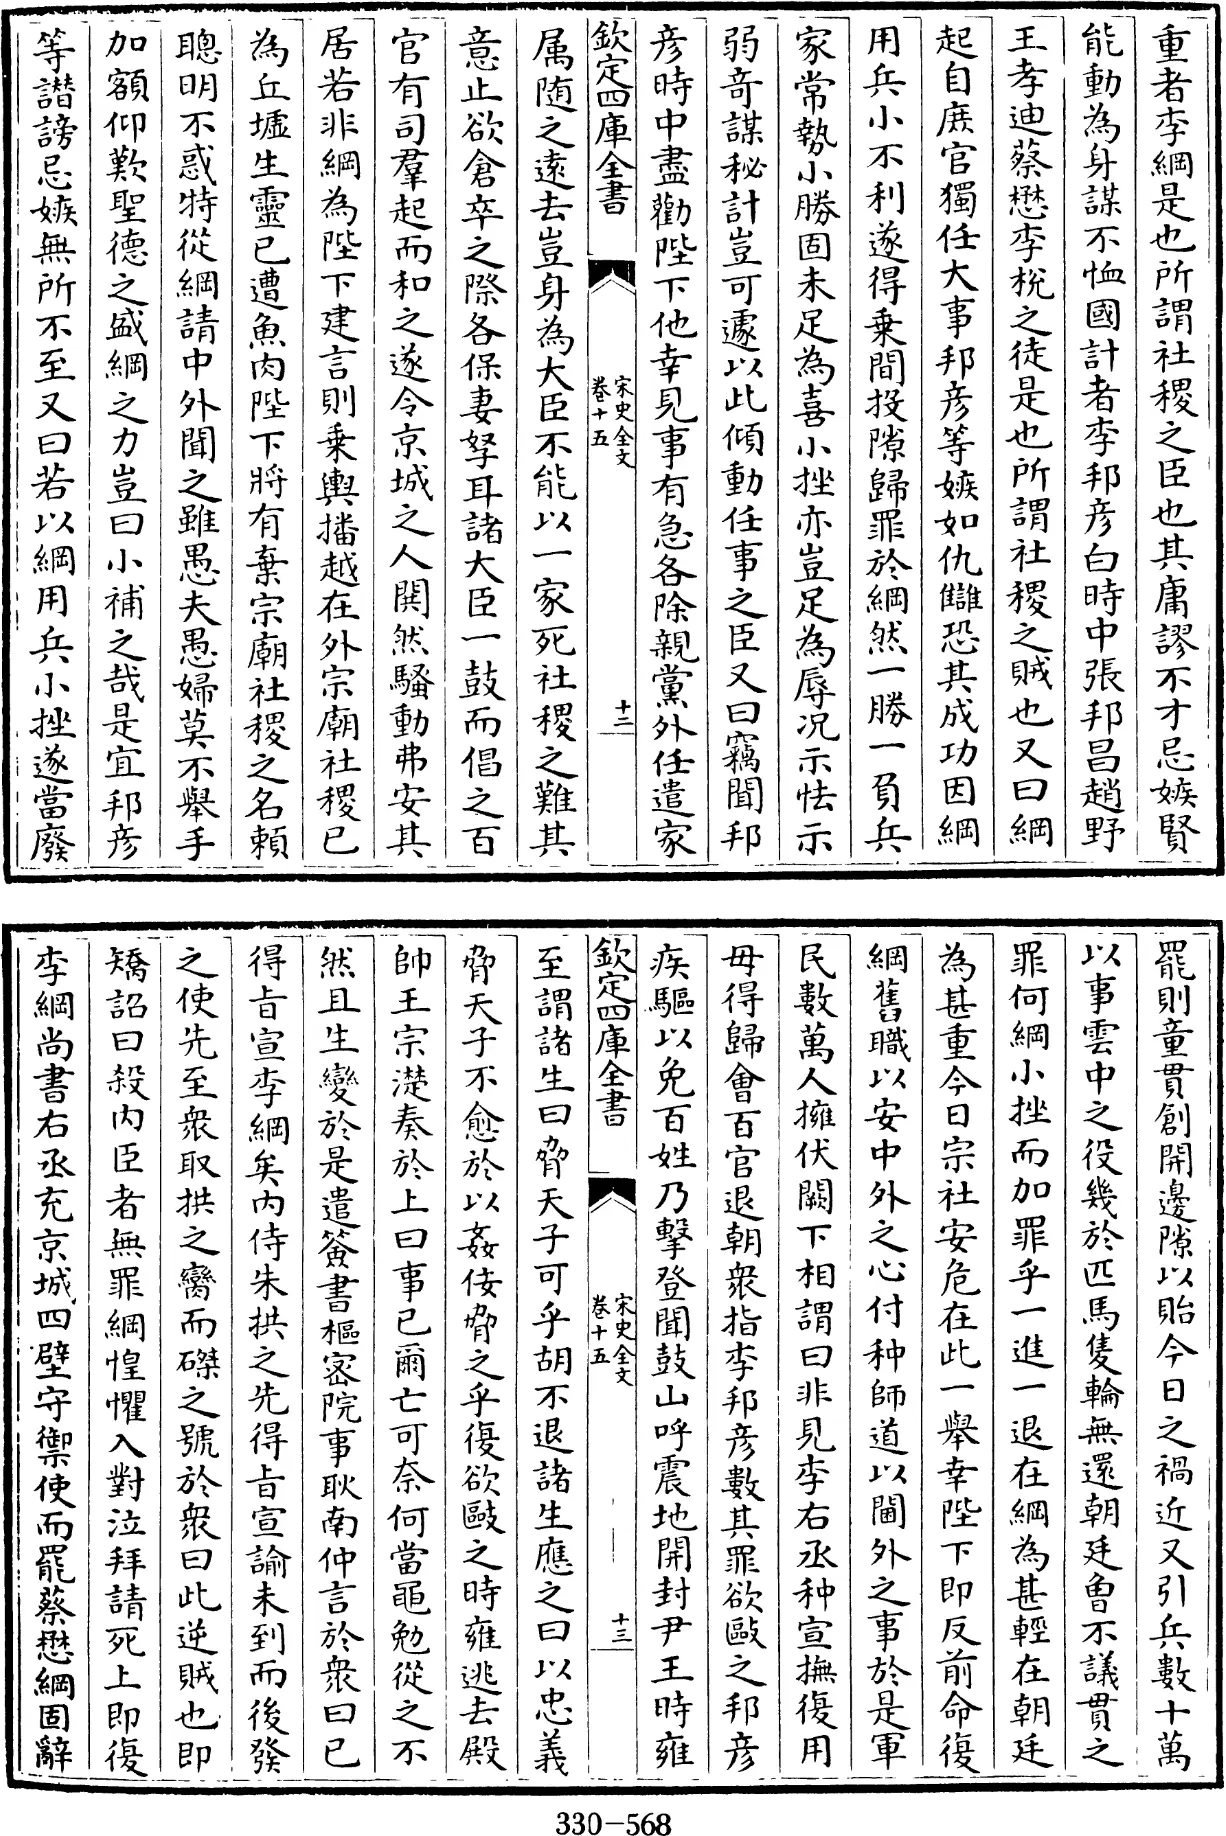 重者李綱是也所謂社稷之臣也其庸謬不才忌嫉賢
能動為身謀不恤國計者李邦彦白時中張邦昌趙野
王孝迪蔡懋李梲之徒是也所謂社稷之賊也又曰綱
起自庶官獨任大事邦彦等嫉如仇讎恐其成功因綱
用兵小不利遂得乗間投隙歸罪於綱然一勝一負兵
家常勢小勝固未足為喜小挫亦豈足為辱况示怯示
弱奇謀秘計豈可遽以此傾動任事之臣又曰竊聞邦
彦時中盡勸陛下他幸見事有急各除親黨外任遣家
欽定四庫全書
宋史全文
卷十五
十二
属随之遠去豈身為大臣不能以一家死社稷之難其
意止欲倉卒之際各保妻孥耳諸大臣一鼓而倡之百
官有司羣起而和之遂令京城之人閧然騷動弗安其
居若非綱為陛下建言則乗輿播越在外宗廟社稷已
為丘墟生靈已遭魚肉陛下將有棄宗廟社稷之名頼
聰明不惑特從綱請中外聞之雖愚夫愚婦莫不舉手
加額仰歎聖德之盛綱之力豈曰小補之哉是宜邦彦
等譖謗忌嫉無所不至又曰若以綱用兵小挫遂當廢
罷則童貫創開邊隙以貽今日之禍近又引兵數十萬
以事雲中之役幾於匹馬隻輪無還朝廷曾不議貫之
罪何綱小挫而加罪乎一進一退在綱為甚輕在朝廷
為甚重今日宗社安危在此一舉幸陛下即反前命復
綱舊職以安中外之心付种師道以閫外之事於是軍
民數萬人擁伏闕下相謂曰非見李右丞种宣撫復用
毋得歸會百官退朝衆指李邦彦數其罪欲毆之邦彦
疾驅以免百姓乃擊登聞鼓山呼震地開封尹王時雍
欽定四庫全書
宋史全文
卷十五
十三
至謂諸生曰脅天子可乎胡不退諸生應之曰以忠義
脅天子不愈於以姦佞脅之乎復欲毆之時雍逃去殿
帥王宗濋奏於上曰事已爾亡可奈何當黽勉從之不
然且生變於是遣簽書樞密院事耿南仲言於衆曰已
得旨宣李綱矣内侍朱拱之先得旨宣諭未到而後發
之使先至衆取拱之臠而磔之號於衆曰此逆賊也即
矯詔曰殺内臣者無罪綱惶懼入對泣拜請死上即復
李綱尚書右丞充京城四壁守禦使而罷蔡懋綱固辭
330-568